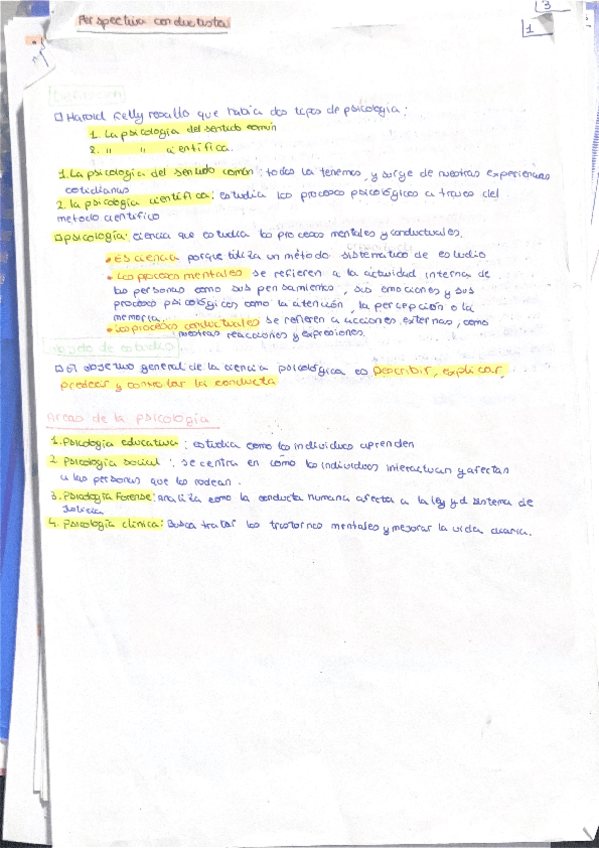 Perspectiva conductista
3
1
Definición
Harold Kelly resalto que había dos tipos de psicologia:
1. La psicologia del sentido común
2. " " científica.
1. La psicologia del sentido común: todos la tenemos, y surge de nuestras experiencias
cotidianas
2. la psicologia científica: estudia los procesos psicológicos a traves del
metodo científico
psicología: ciencia que estudia los procesos mentales y conductuales.
• Es ciencia porque utiliza un método sistematico de estudio
• Los procesos mentales se refieren a la actividad interna de
las personas como sus pensamientos, sus emociones y sus
procesos psicológicos como la atención, la percepción o la
memoria.
• Los procesos conductuales se refieren a acciones externas, como
nuestras reacciones y expresiones.
Objeto de estudio
El objetivo general de la ciencia psicológica es Describir, explicar,
predecir y controlar la conducta
Areas de la psicologia
1. Psicologia educativa: estudia como los individuos aprenden
2 Psicologia social: se centra en cómo los individuos interactuan y afectas
a las personas que los rodean.
3. Psicología Forense: analiza como la conducta humana afecta a la ley y el sistema de
Justicia
4. Psicología clínica: Busca tratar los trastornos mentales y mejorar la vida diaria.